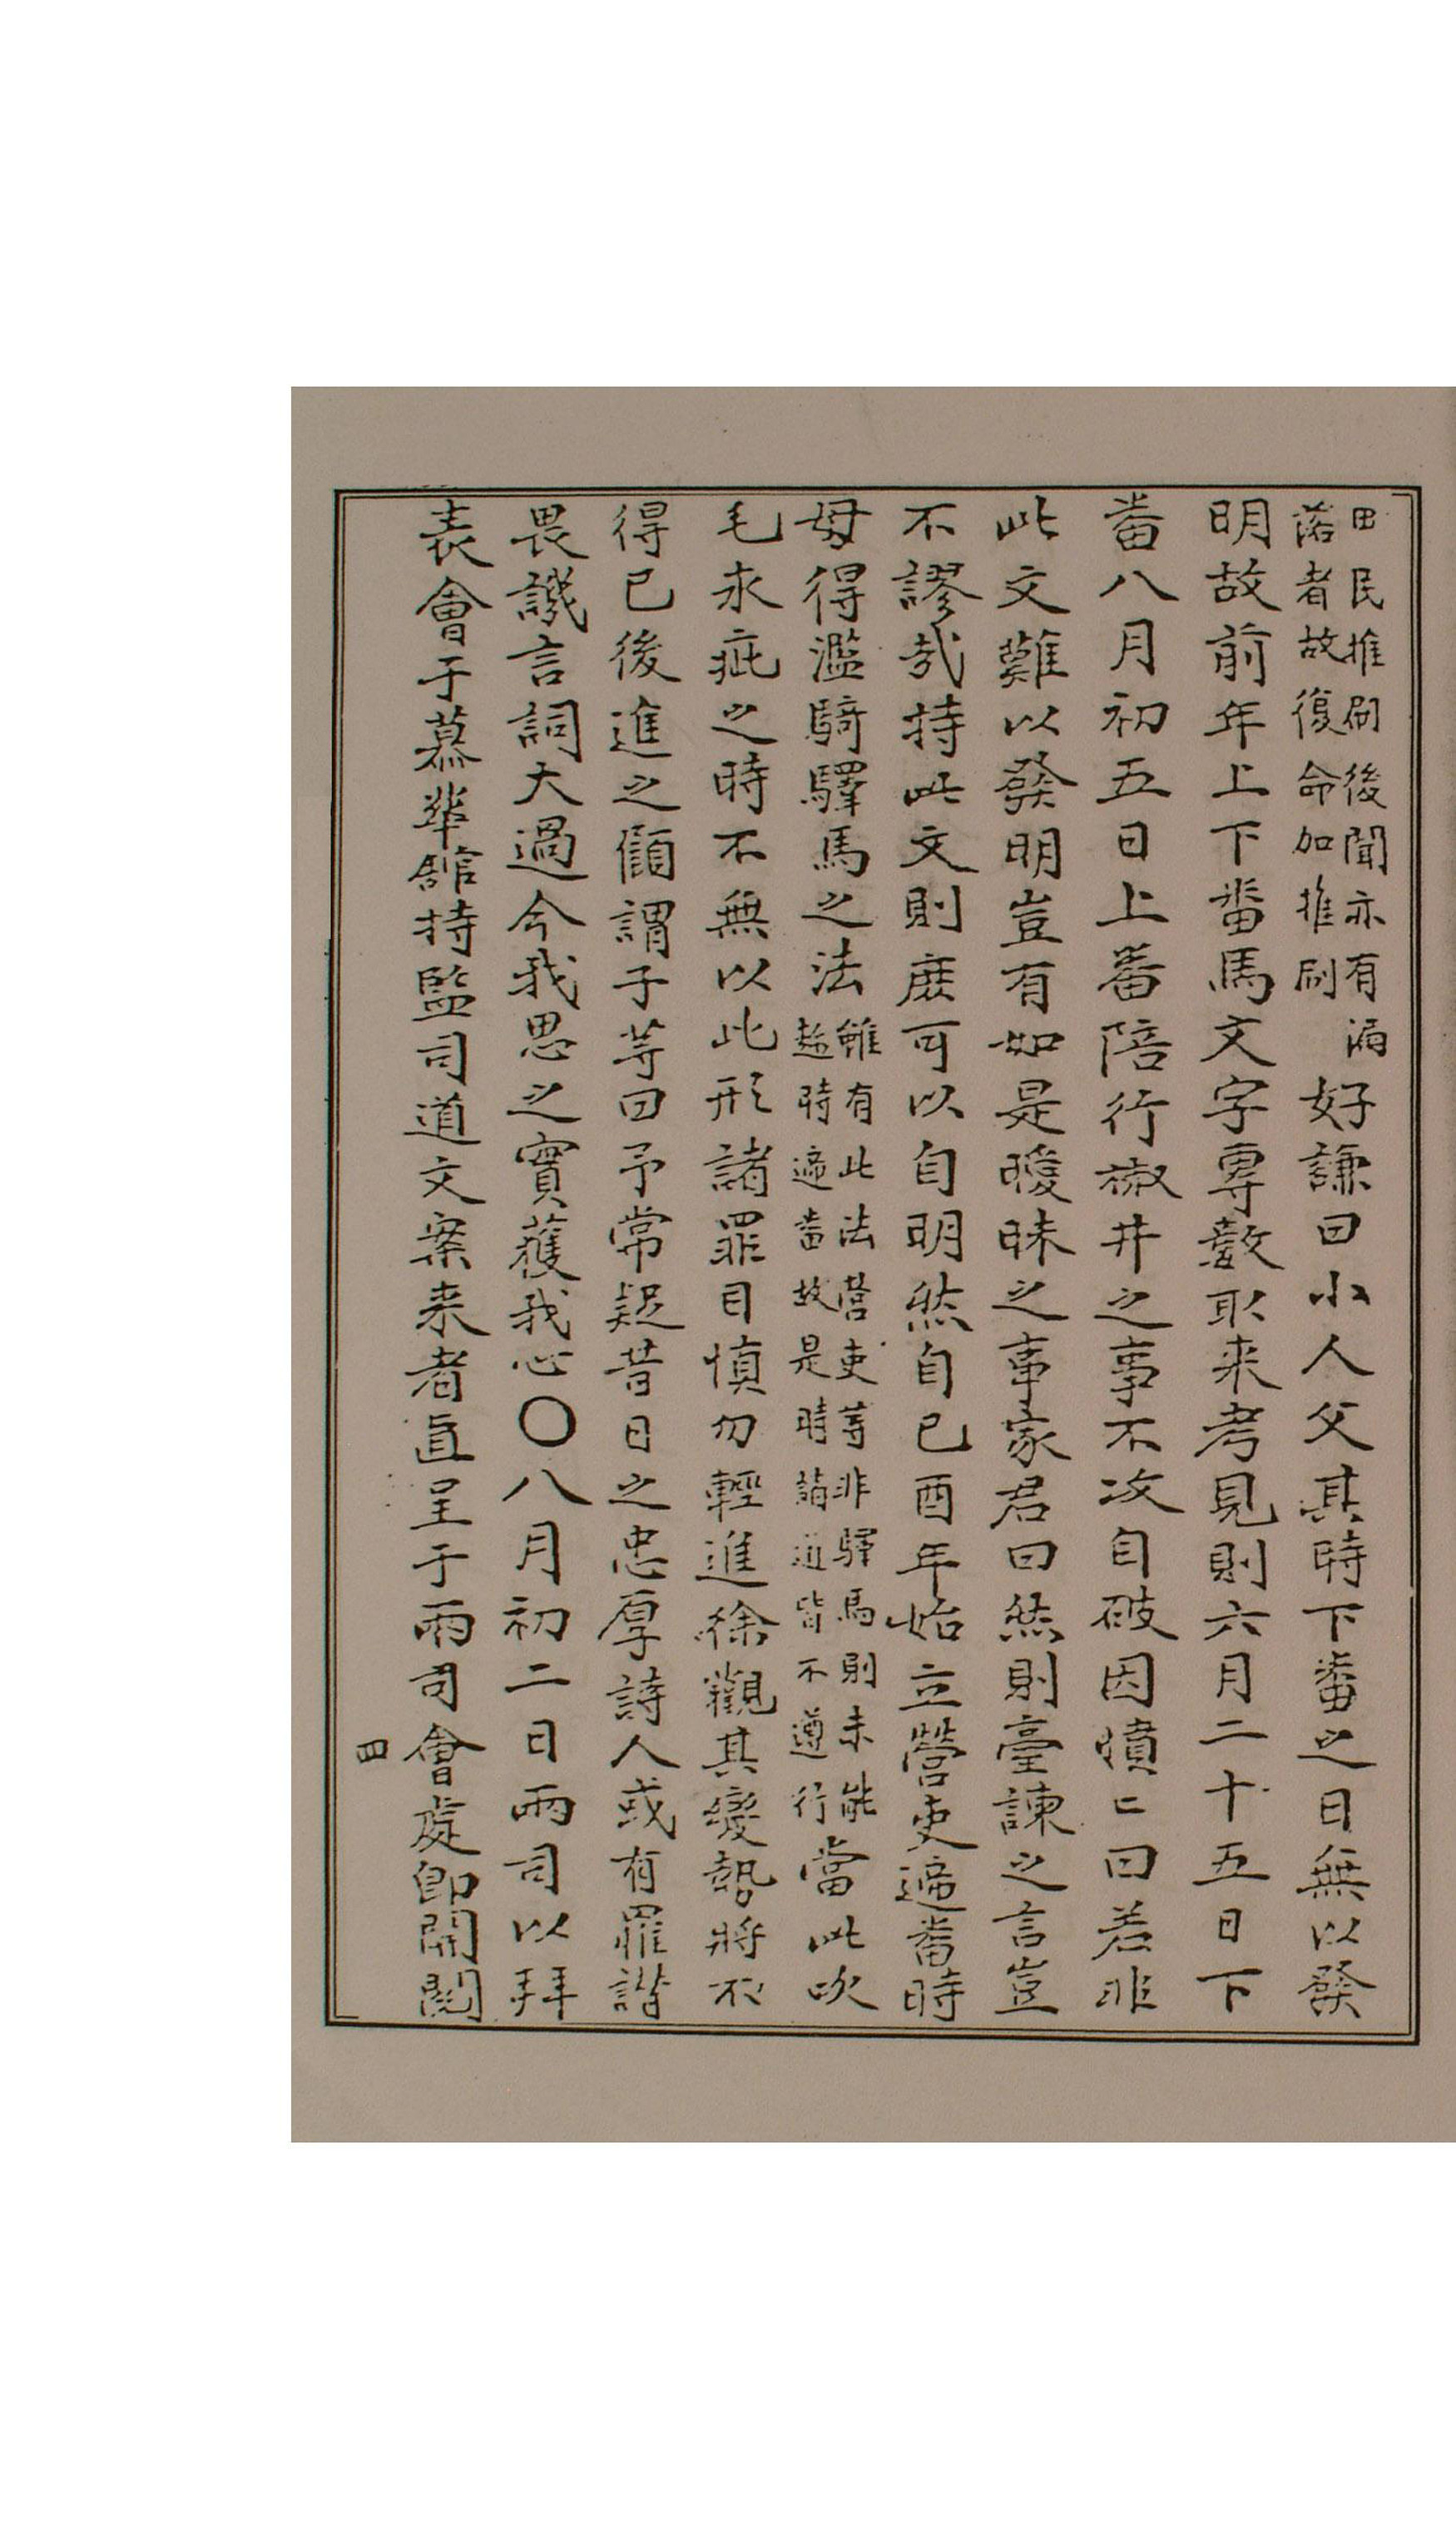 田民推刷後聞亦有漏
落者故復命如推刷
好謙曰小人父其時下畨之日無以發
明故前年上下畨馬文字専數取来考見則六月二十五日下
畨八月初五日上畨陪行椒井之事不攻自破因憤〻曰若非
此文難以發明豈有如是曖昧之事家君曰然則臺諫之言豈
不謬㢤持此文則庶可以自明然自己酉年始立營吏遞畨時
毋得濫騎驛馬之法
雖有此法營吏等非驛馬則未能
趂時遞畨故是時諸道皆不遵行
當此吹
毛求疵之時不無以此形諸罪目慎勿輕進徐觀其變勢將不
得已後進之顧謂子等曰予常疑昔日之忠厚詩人或有罹讒
畏譏言詞大過今我思之實獲我心○八月初二日兩司以拜
表會于慕華舘持監司道文案来者直呈于兩司會處卽開閱
四